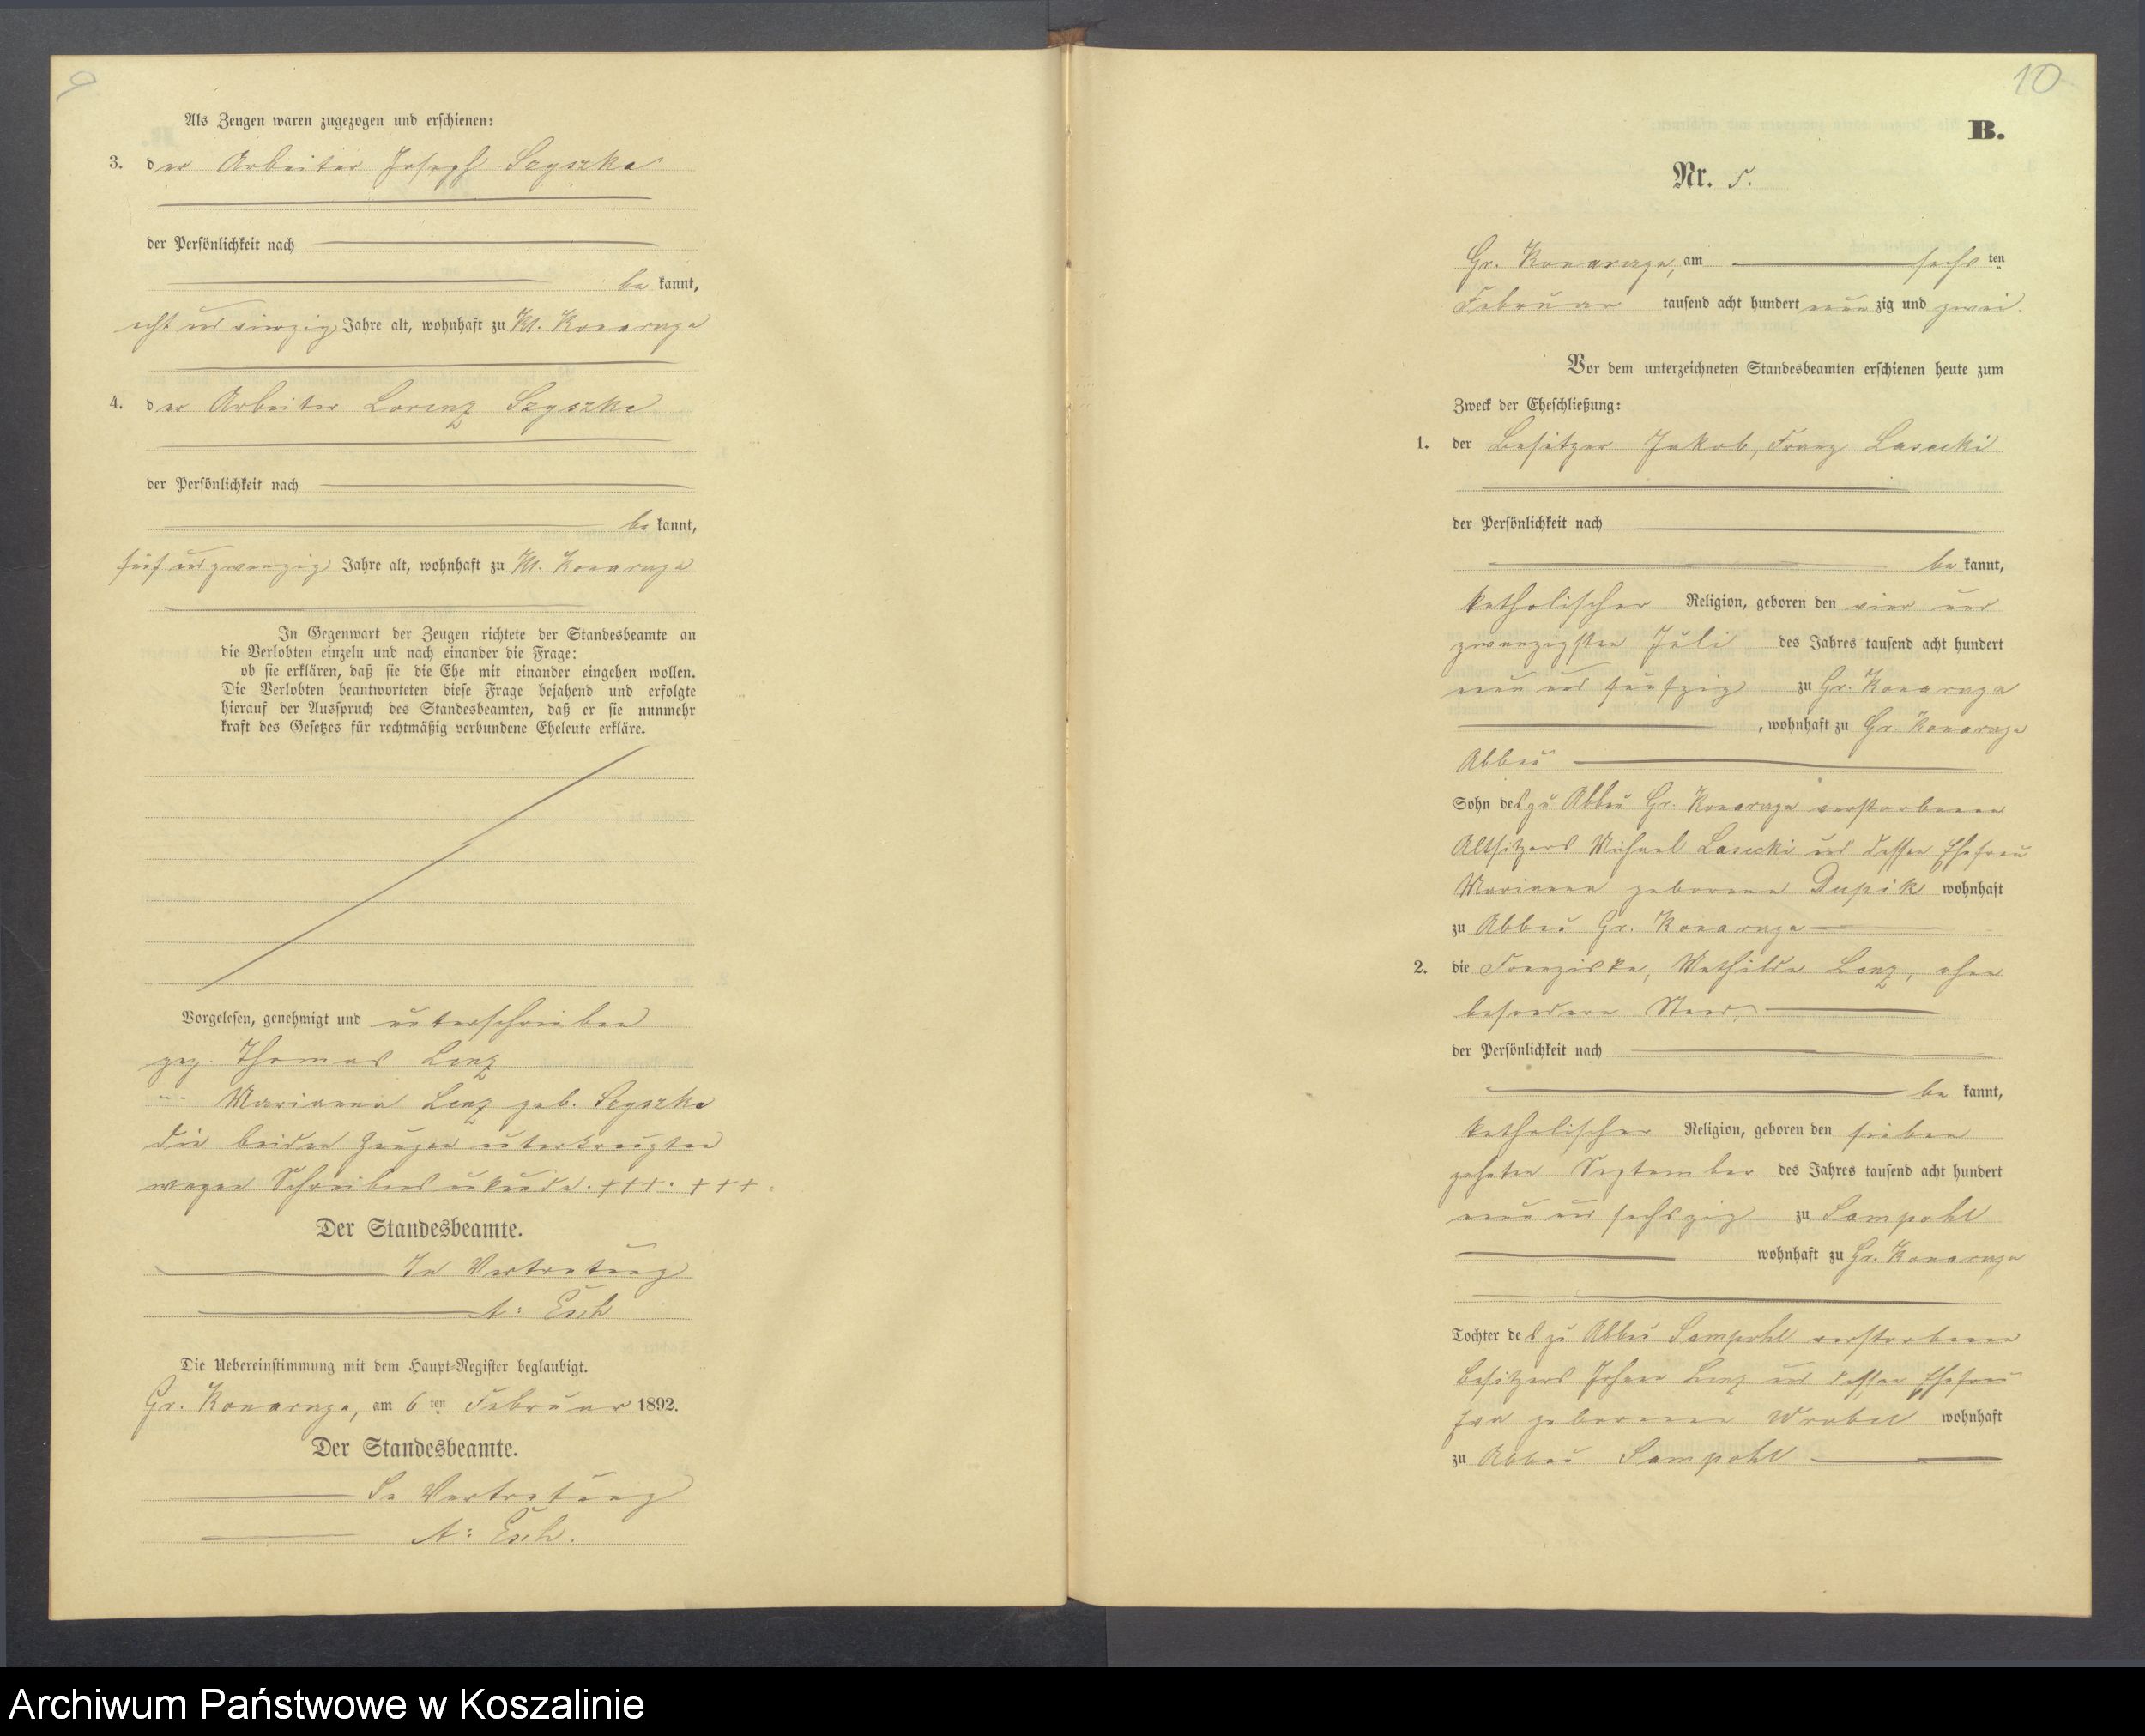 9
Als Zeugen waren zugezogen und erschienen:
3. der Arbeiter Joseph Szyszka
der Persönlichkeit nach
be kannt,
acht und vierzig Jahre alt, wohnhaft zu Kl. Konarzyn
4. der Arbeiter Lorenz Szyszka
der Persönlichkeit nach
be kannt,
fünf und zwanzig Jahre alt, wohnhaft zu Kl. Konarzyn
In Gegenwart der Zeugen richtete der Standesbeamte an
die Verlobten einzeln und nach einander die Frage:
ob sie erklären, daß sie die Ehe mit einander eingehen wollen.
Die Verlobten beantworteten diese Frage bejahend und erfolgte
hierauf der Ausspruch des Standesbeamten, daß er sie nunmehr
kraft des Gesetzes für rechtmäßig verbundene Eheleute erkläre.
Vorgelesen, genehmigt und unterschrieben
gez. Thomas Lenz
"" Marianna Lenz geb. Szyszka
die beiden Zeugen unterkreuzten
wegen Schreibensunkunde. +++. +++.
Der Standesbeamte.
In Vertretung
A: Esch
Die Uebereinstimmung mit dem Haupt-Register beglaubigt.
Gr. Konarzyn, am 6 ten Februar 1892.
Der Standesbeamte.
In Vertretung
A: Esch.
10
B.
Nr. 5.
Gr. Konarzyn, am sechs ten
Februar tausend acht hundert neun zig und zwei.
Vor dem unterzeichneten Standesbeamten erschienen heute zum
Zweck der Eheschließung:
1. der Besitzer Jakob, Franz Lasecki
der Persönlichkeit nach
be kannt,
katholischer Religion, geboren den vier und
zwanzigsten Juli des Jahres tausend acht hundert
neun und fünfzig zu Gr. Konarzyn
, wohnhaft zu Gr. Konarzyn
Abbau
Sohn des zu Abbau Gr. Konarzyn verstorbenen
Altsitzers Michael Lasecki und dessen Ehefrau
Marianna geborene Dupik wohnhaft
zu Abbau Gr. Konarzyn
2. die Franziska, Mathilde Lenz, ohne
besonderen Stand,
der Persönlichkeit nach
be kannt,
katholischer Religion, geboren den sieben
zehnten September des Jahres tausend acht hundert
neun und sechszig zu Sampohl
wohnhaft zu Gr. Konarzyn
Tochter des zu Abbau Sampohl verstorbenen
Besitzers Johann Lenz und dessen Ehefrau
Eva geborene Wrobel wohnhaft
zu Abbau Sampohl
Archiwum Państwowe w Koszalinie